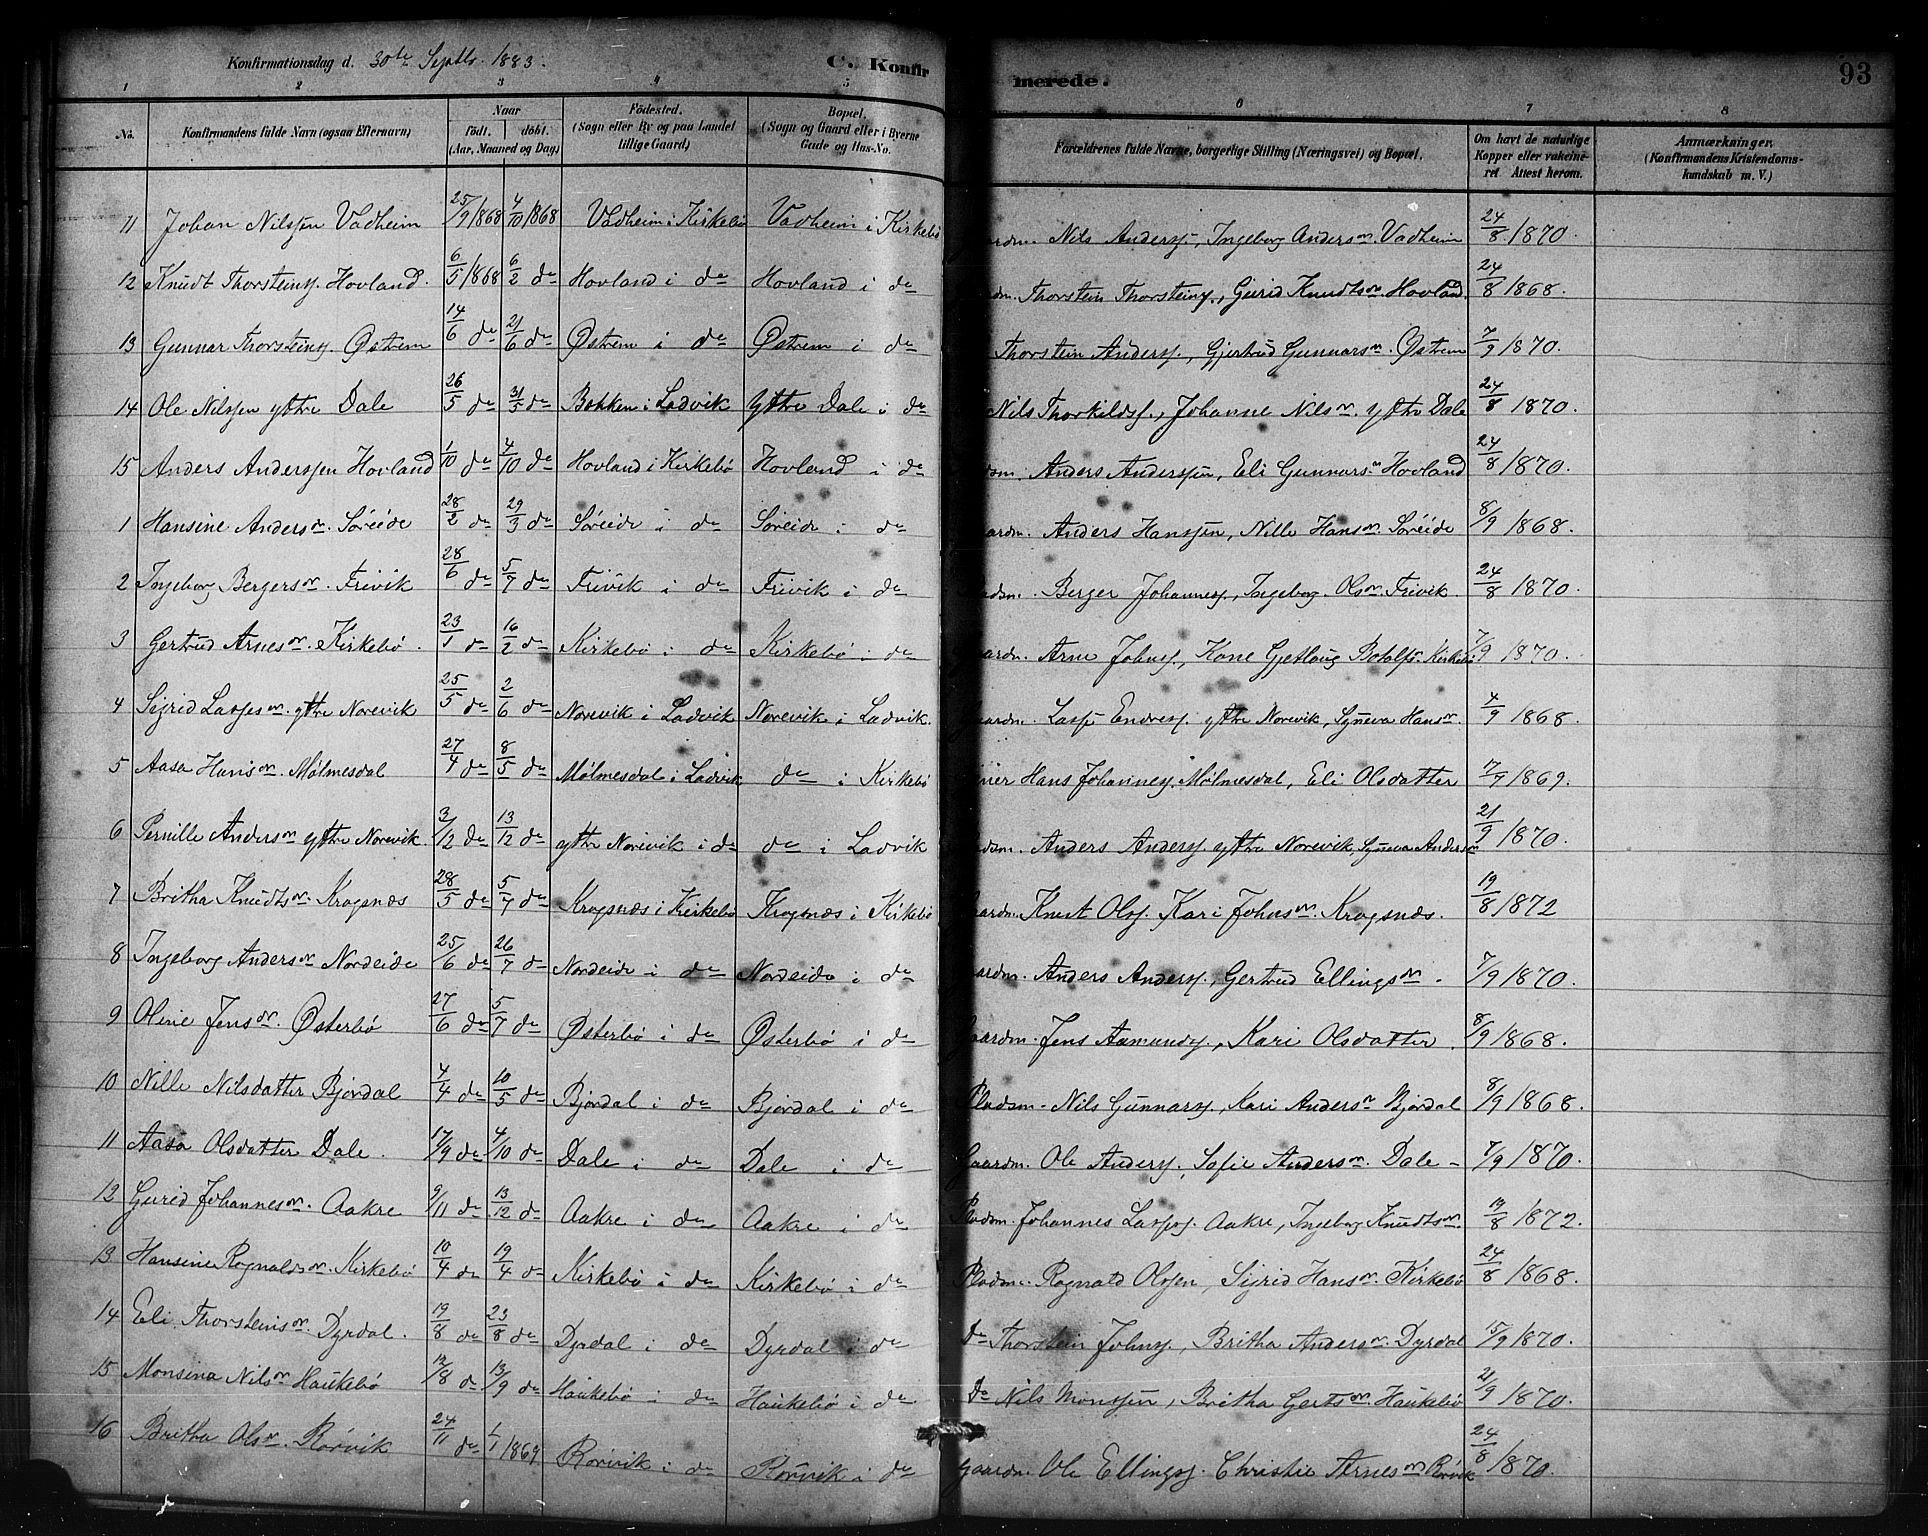 Konfirmationsdag d. 30te Septbr. 1883. C. Konfirmerede. 93
1 2 3 4 5 6 7 8
No. Konfirmandens fulde Navn (ogsaa Efternavn) Naar født. døbt. (Aar, Maaned og Dag) Fødested. (Sogn eller By og paa Landet tillige Gaard) Bopæl. (Sogn og Gaard eller i Byerne Gade og Hus-No. Forældrenes fulde Navne, borgerlige Stilling (Næringsvei) og Bopæl. Om havt de naturlige Kopper eller vakcineret Attest herom. Anmærkninger. (Konfirmandens Kristendomskundskab m. V.)
11 Johan Nilssen Vadheim 25/9 1868 4/10 1868 Vadheim i Kirkebø Vadheim i Kirkebø Nils Anderss., Ingeborg Andersdr. Vadheim 24/8 1870.
12 Knudt Thorsteins. Hovland. 6/5 1868 6/2 do Hovland i do Hovland i do Thorstein Thorsteins., Gurid Knudtsdr. Hovland 24/8 1868.
13 Gunnar Thorsteins. Østrem 14/6 do 21/6 do Østrem i do Østrem i do Thorstein Anderss., Gjertrud Gunnarsdr. Østrem 7/9 1870.
14 Ole Nilssen ytre Dale 26/5 do 31/5 do Bakken i Ladvik Ytre Dale i do Nils Thorkildss., Johanne Nilsdr. ytre Dale 24/8 1870.
15 Anders Anderssen Hovland 1/10 do 4/10 do Hovland i Kirkebø Hovland i do Anders Anderssen, Eli Gunnarsdr. Hovland 24/8 1870.
1 Hansine Andersdr. Søreide 28/2 do 29/3 do Søreide i do Søreide i do Gaardm. Anders Hanssen, Nille Hansdr. Søreide 8/9 1868.
2 Ingeborg Bergersdr. Frivik 28/6 do 5/7 do Frivik i do Frivik i do Pladsm. Berger Johanness., Ingeborg Olsdr. Frivik. 24/8 1870.
3 Gertrud Arnesdr. Kirkebø. 23/1 do 16/2 do Kirkebø i do Kirkebø i do Gaardm. Arne Johns., Kone Gjetlaug Botolfs. Kirkebø 7/9 1870.
4 Sigrid Lassesdr. ytre Norevik 25/5 do 2/6 do Norevik i Ladvik Norevik i Ladvik Gaardm. Lasse Endress. ytre Norevik, Syneva Hansdr. 4/9 1868.
5 Aasa Hansdr. Mølmesdal 27/4 do 8/5 do Mølmesdal i Ladvik do i Kirkebø Hans Johanness. Mølmesdal, Eli Olsdatter 7/9 1869.
6 Pernille Andersdr. ytre Norevik. 3/12 do 13/12 do ytre Norevik i do do i Ladvik Pladsm. Anders Anderss. ytre Norevik, Syneva Andersdr. 21/9 1870.
7 Britha Knudtsdr. Krogsnæs 28/5 do 5/7 do Krogsnæs i Kirkebø Krogsnæs i Kirkebø Gaardm. Knut Olss. Kari Johnsdr. Krogsnæs. 19/8 1872
8 Ingeborg Andersdr. Nordeide 25/6 do 26/7 do Nordeide i do Nordeide i do Gaardm. Anders Anderss., Gertrud Ellingsdr. 7/9 1870.
9 Oline Jensdr. Østerbø 27/6 do 5/7 do Østerbø i do Østerbø i do Gaardm. Jens Aamunds., Kari Olsdatter 8/9 1868.
10 Nille Nilsdatter Bjørdal 7/4 do 10/5 do Bjørdal i do Bjørdal i do Pladsm. Nils Gunnarss., Kari Andersdr. Bjørdal 8/9 1868.
11 Aasa Olsdatter Dale. 17/9 do 4/10 do Dale i do Dale i do Gaardm. Ole Anderss., Sofie Andersdr. Dale 7/9 1870.
12 Gurid Johannesdr. Aakre 9/11 do 13/12 do Aakre i do Aakre i do Pladsm. Johannes Lasses. Aakre, Ingeborg Knudtsdr. 19/8 1872.
13 Hansine Rognaldsdr. Kirkebø 10/4 do 19/4 do Kirkebø i do Kirkebø i do Pladsm. Rognald Olssen, Sigrid Hansdr. Kirkebø 24/8 1868.
14 Eli Thorsteinsdr. Dyrdal. 19/8 do 23/8 do Dyrdal i do Dyrdal i do Do Thorstein Johns., Britha Andersdr. Dyrdal 15/9 1870.
15 Monsina Nilsdr. Haukebø 12/8 do 13/9 do Haukebø i do Haukebø i do Do Nils Monssen, Britha Gertsdr. Haukebø 21/9 1870.
16 Britha Olsdr. Rørvik 24/11 do 1/1 1869 Rørvik i do Rørvik i do Gaardm. Ole Ellings. Christie Arnesdr. Rørvik 24/8 1870.